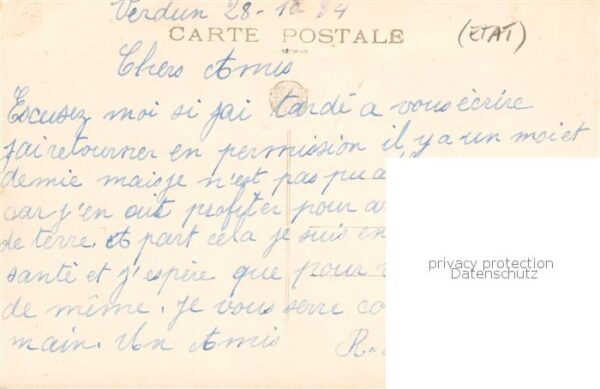 Verdun 28-10 34
CARTE POSTALE
(ETAT)
Chers Amis
Escusez moi si jai tardé a vous écrire
jai retourner en permission il y a un moi et
demie mais je n'est pas pu a
car j'en ait profiter pour a
de terre. A part cela je suis en
santé et j'espère que pour v
de même. Je vous serre co
main. Un Amis R.
privacy protection
Datenschutz